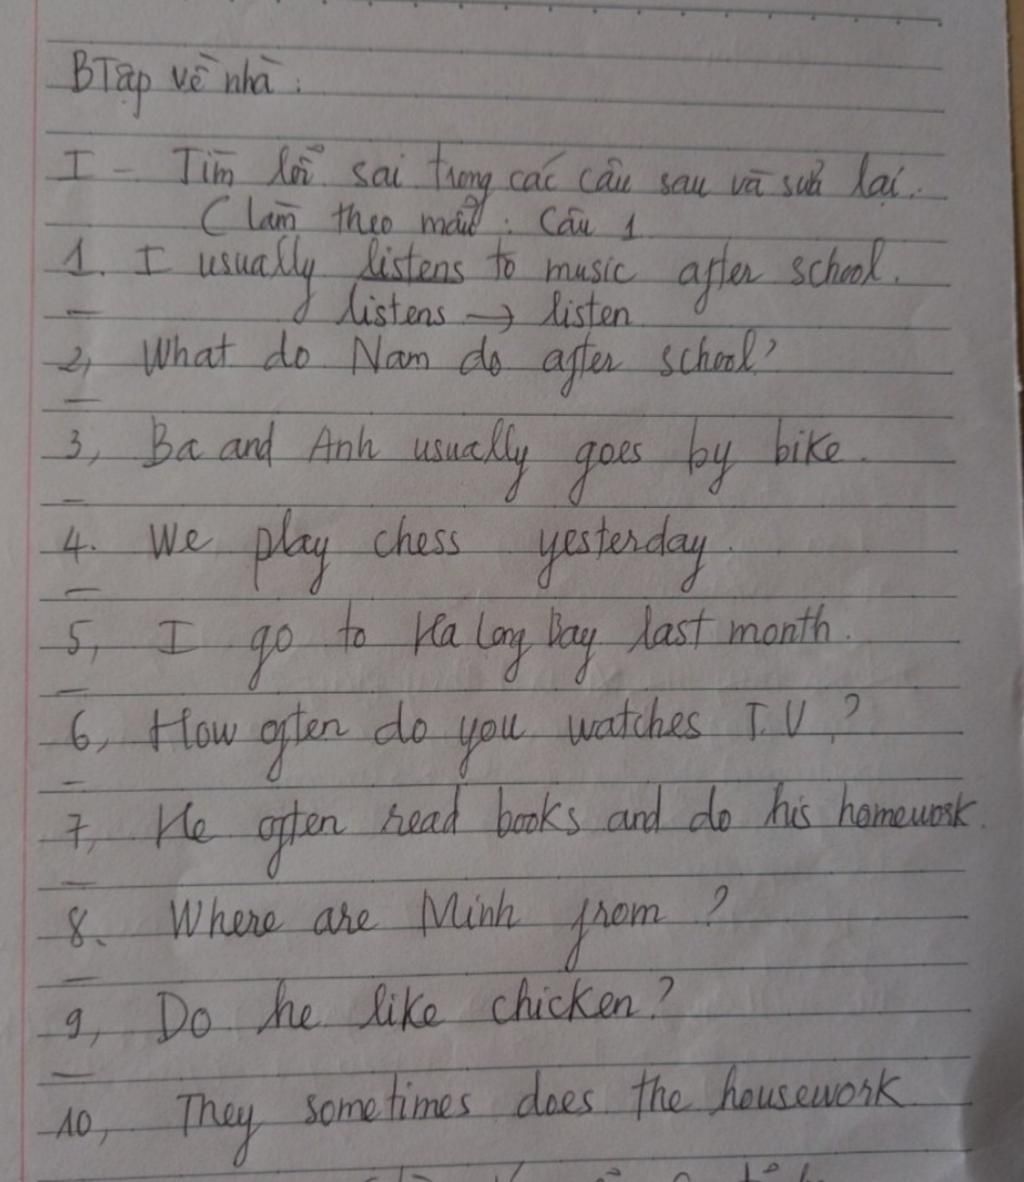 BTập về nhà:
I - Tìm lỗi sai trong các câu sau và sửa lại.
( làm theo mẫu : Câu 1
1. I usually listens to music after school.
listens → listen
2, What do Nam do after school?
3, Ba and Anh usually goes by bike.
4. We play chess yesterday.
5, I go to Ha Long Bay last month.
6, How often do you watches T.V ?
7, He often read books and do his homework.
8. Where are Minh from ?
9, Do he like chicken?
10, They sometimes does the housework